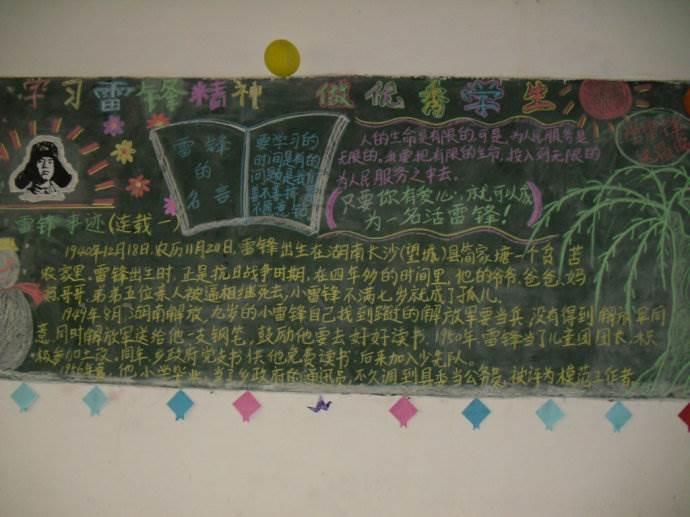 学习雷锋精神 做优秀学生
雷锋
的
名言
要学习的
时间是有的
人的生命是有限的,可是,为人民服务是
无限的,我要把有限的生命,投入到无限的
为人民服务之中去。
只要你有爱心,就可以成
为一名活雷锋!
雷锋事迹(连载一)
1940年12月18日,农历11月20日,雷锋出生在湖南长沙(望城)县简家塘一个贫苦
农家里,雷锋出生时,正是抗日战争时期,在四年多的时间里,他的爷爷、爸爸、妈
妈、哥哥、弟弟五位亲人被逼相继死去,小雷锋不满七岁就成了孤儿。
1949年8月,湖南解放,九岁的小雷锋自己找到路过的解放军要当兵,没有得到解放军同
意,同时解放军送给他一支钢笔,鼓励他要去好好读书,1950年,雷锋当了儿童团团长,积
极参加土改,同年,乡政府党支书供他免费读书,后来加入少先队。
1956年夏,他小学毕业,当了乡政府的通讯员,不久调到县委当公务员,被评为模范工作者